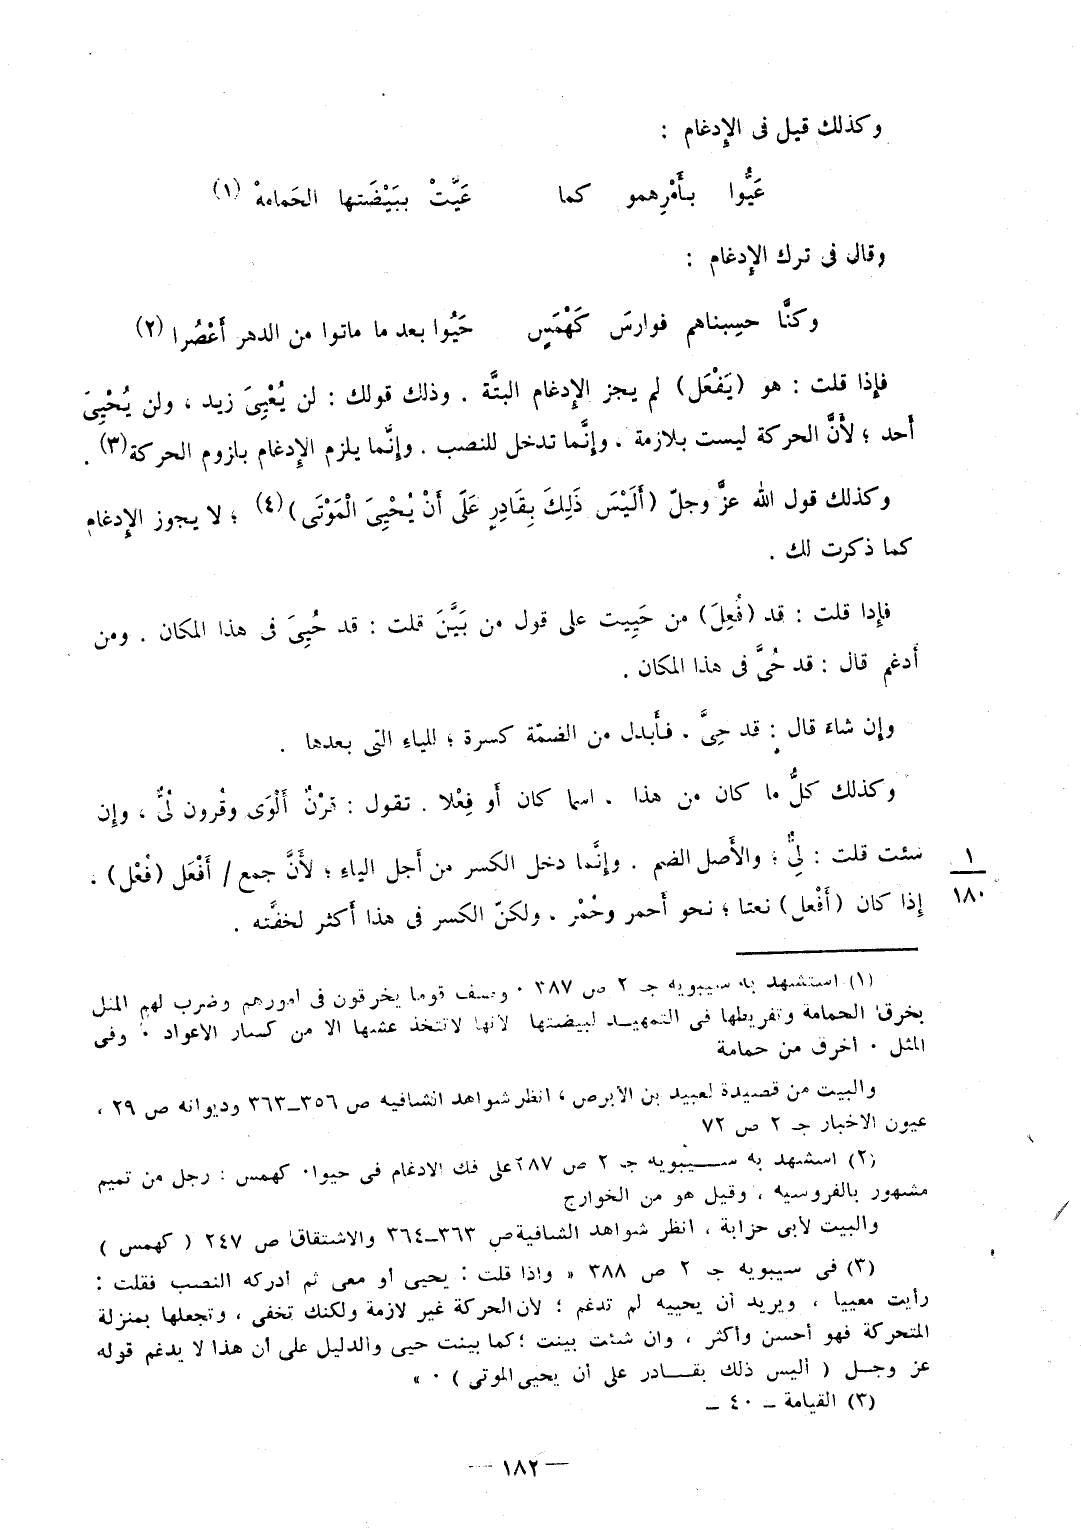 وكذلك قيل فى الإدغام :
عَيُّوا بأَمْرِهمو كما عَيَّتْ ببَيْضَتها الحَمامهْ (١)
وقال فى ترك الإدغام :
وكنَّا حسِبناهم فوارسَ كَهْمَسٍ حَيُوا بعد ما ماتوا من الدهر أَعْصُرا (٢)
فإِذا قلت : هو (يَفْعَل) لم يجز الإِدغام البتَّة . وذلك قولك : لن يُعْيِىَ زيد ، ولن يُحْيِىَ
أَحد ؛ لأَنَّ الحركة ليست بلازمة . وإِنَّما تدخل للنصب . وإِنَّما يلزم الإِدغام بلزوم الحركة (٣) .
وكذلك قول الله عزَّ وجلّ (أَلَيْسَ ذَلِكَ بِقَادِرٍ عَلَى أَنْ يُحْيِىَ الْمَوْتَى) (٤) ؛ لا يجوز الإِدغام
كما ذكرت لك .
فإِذا قلت : قد (فُعِلَ) من حَيِيت على قول من بَيَّنَ قلت : قد حُيِىَ فى هذا المكان . ومن
أَدغم قال : قد حُىَّ فى هذا المكان .
وإِن شاءَ قال : قد حِىَّ . فأَبدل من الضمّة كسرة ؛ للياء التى بعدها .
وكذلك كلُّ ما كان من هذا . اسما كان أَو فِعْلا . تقول : قرْنٌ أَلْوَى وقُرون لُىٌّ ، وإِن
شئت قلت : لِىٌّ ؛ والأَصل الضم . وإِنَّما دخل الكسر من أجل الياء ؛ لأَنَّ جمع / أَفْعَل (فُعْل) .
١
١٨٠
إِذا كان (أَفْعل) نعتا ؛ نحو أَحمر وحُمْر . ولكنّ الكسر فى هذا أَكثر لخفَّته .
(١) استشهد به سيبويه جـ ٢ ص ٣٨٧ ٠ وصف قوما يخرقون فى أمورهم وضرب لهم المثل
بخرق الحمامة وتفريطها فى التمهيد لبيضتها لأنها لاتتخذ عشها الا من كسار الأعواد ٠ وفى
المثل ٠ أخرق من حمامة
والبيت من قصيدة لعبيد بن الأبرص ، انظر شواهد الشافيه ص ٣٥٦ــ٣٦٣ وديوانه ص ٢٩ ،
عيون الاخبار جـ ٢ ص ٧٢
(٢) استشهد به سـيبويه جـ ٢ ص ٣٨٧ على فك الادغام فى حيوا٠ كهمس : رجل من تميم
مشهور بالفروسيه ، وقيل هو من الخوارج
والبيت لأبى حزابة ، انظر شواهد الشافيةص ٣٦٣ــ٣٦٤ والاشتقاق ص ٢٤٧ ( كهمس )
(٣) فى سيبويه جـ ٢ ص ٣٨٨ « واذا قلت : يحيى أو معى ثم أدركه النصب فقلت :
رأيت معييا ، ويريد أن يحييه لم تدغم ؛ لأن الحركة غير لازمة ولكنك تخفى ، وتجعلها بمنزلة
المتحركة فهو أحسن وأكثر ، وان شئت بينت ؛ كما بينت حيى والدليل على أن هذا لا يدغم قوله
عز وجـل ( أليس ذلك بقـادر على أن يحيى الموتى ) ٠ »
(٣) القيامة ــ ٤٠ ــ
— ١٨٢ —